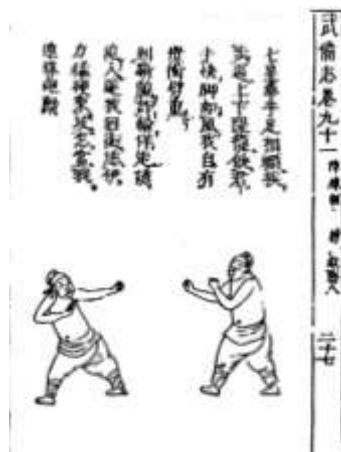 武備志卷九十一 陣練制 練 教藝八 二十七
七星拳手足相顧挨
步逼上下隄籠饒君
手快脚如風我自有
攪衝劈重
到騎龍詐輸佯走誘
追入遂我回衝恁伊
力猛硬來攻怎當我
連珠砲動